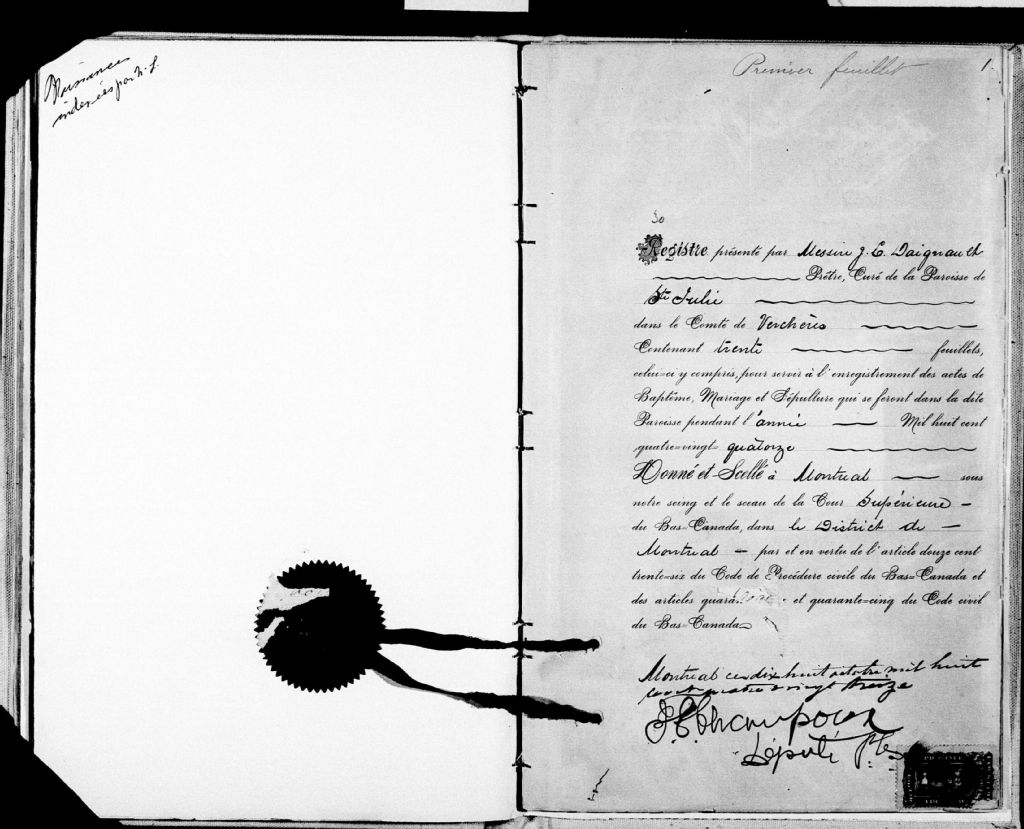 Naissances
indexées par N. L.
Premier feuillet
1
30
Registre présenté par Messire J. E. Daignault
Prêtre, Curé de la Paroisse de
Ste Julie
dans le Comté de Verchères
Contenant trente feuillets,
celui=ci y compris, pour servir à l'enregistrement des actes de
Baptême, Mariage et Sépulture qui se feront dans la dite
Paroisse pendant l'année Mil huit cent
quatre=vingt= quatorze
Donné et Scellé à Montreal sous
notre seing et le sceau de la Cour Supérieure
du Bas=Canada, dans le District de
Montreal par et en vertu de l'article douze cent
trente=six du Code de Procédure civile du Bas=Canada et
des articles et quarante=cinq du Code civil
du Bas=Canada
Montreal ce dix huit octobre mil huit
cent quatre vingt treize
Député P.